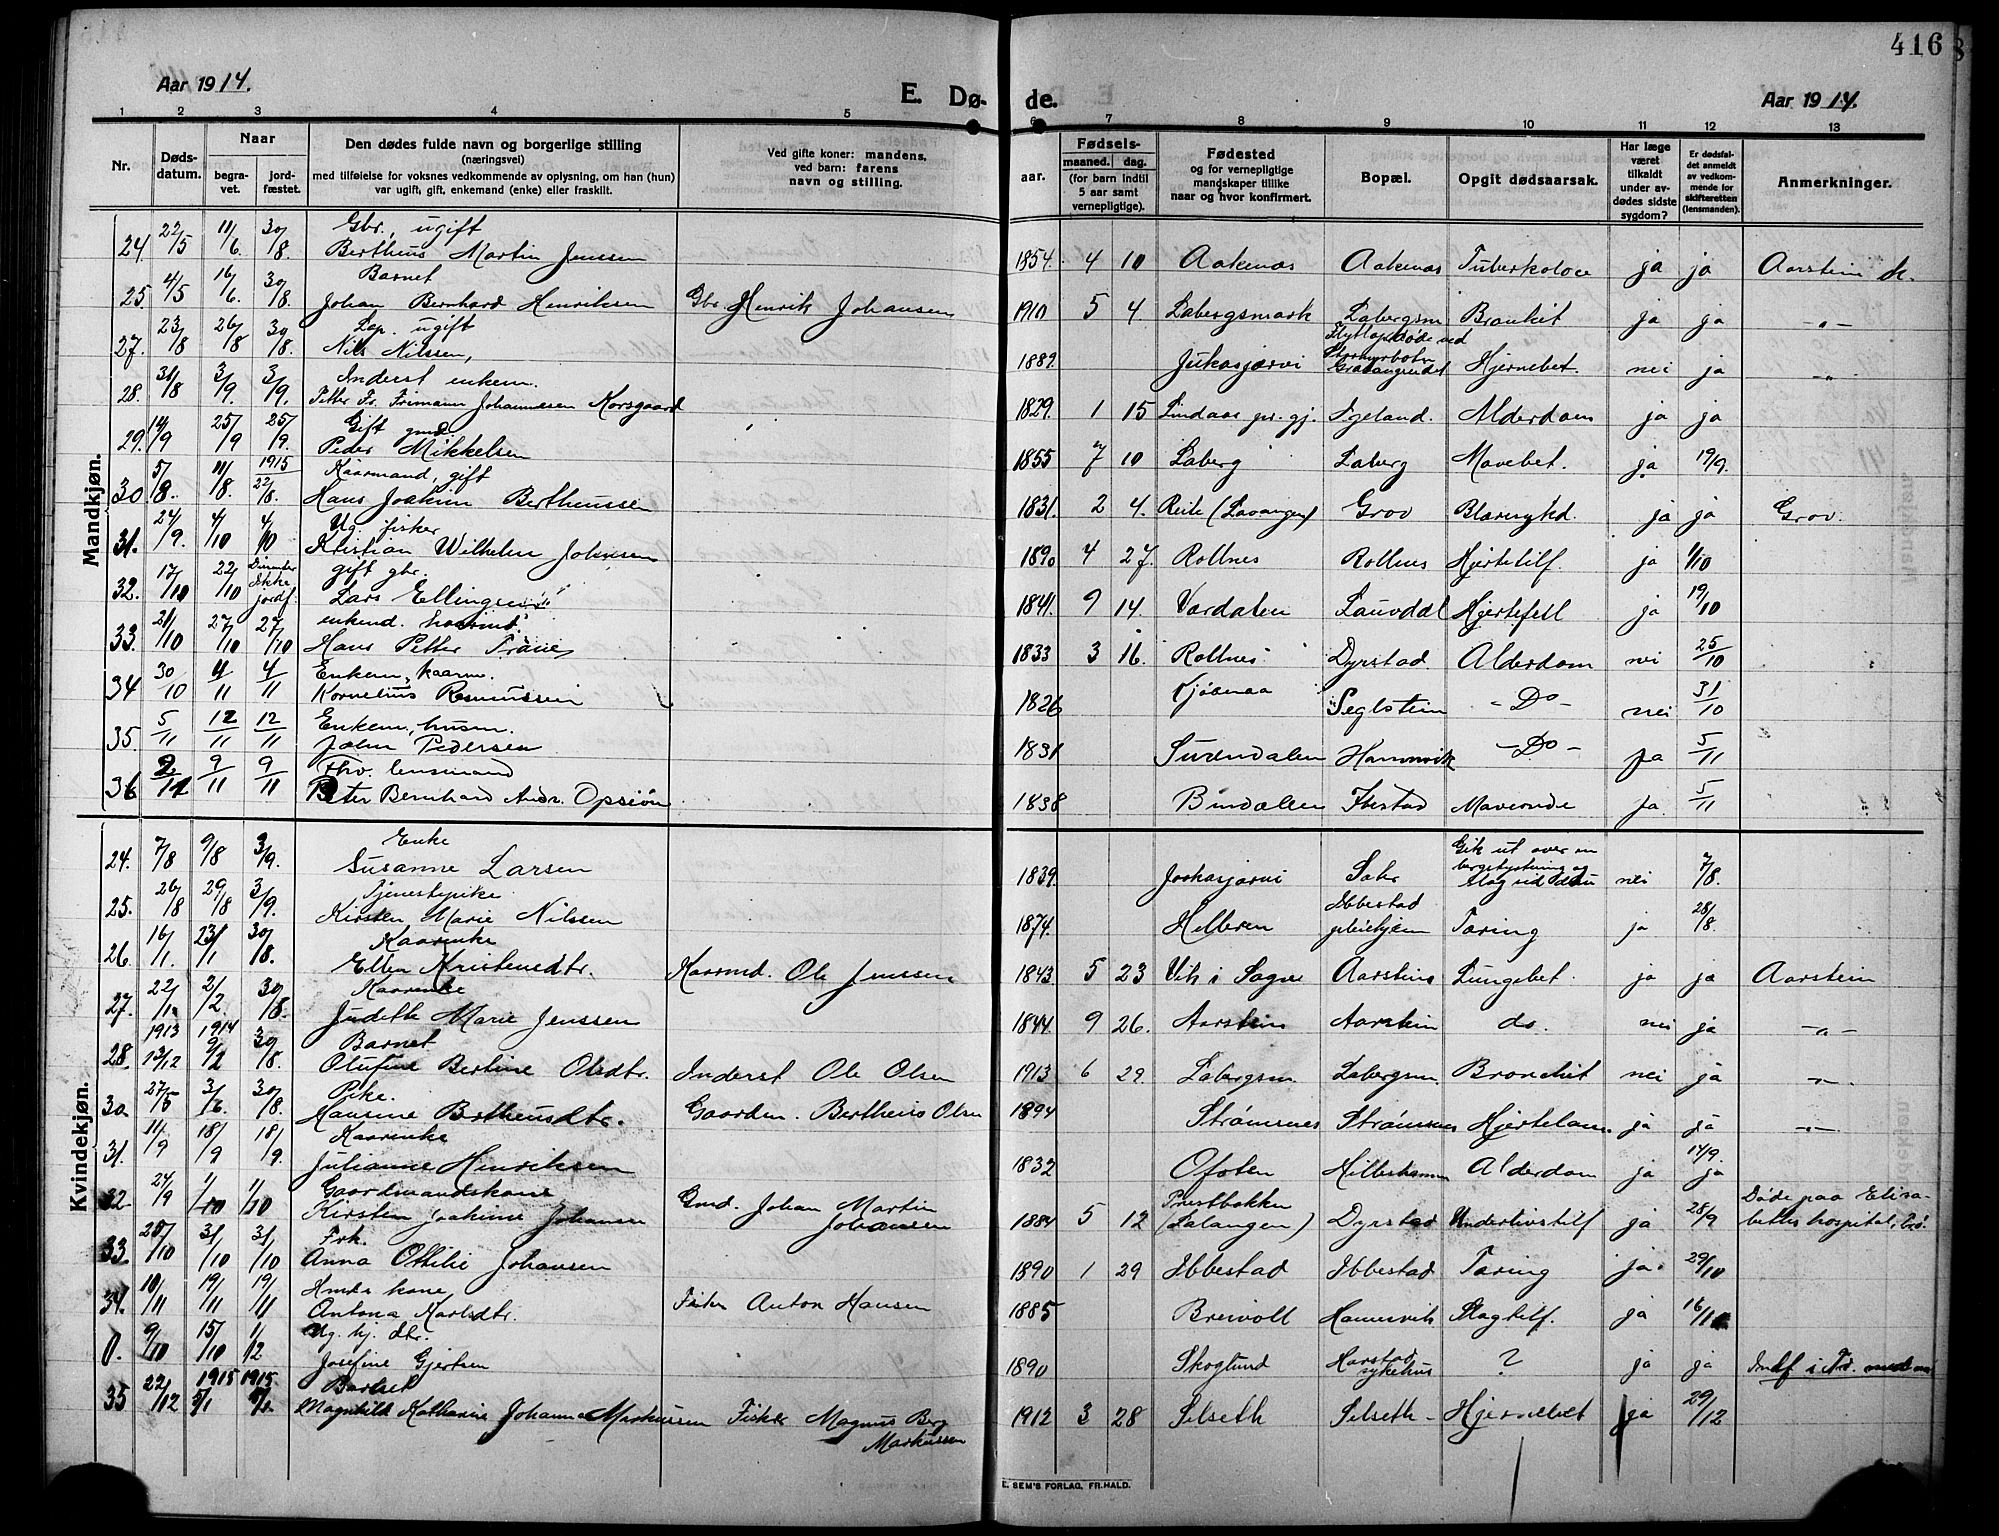 416
Aar 1914.
E. Dø-
de.
Aar 1914.
1 2 3 4 5 6 7 8 9 10 11 12 13
Nr.
Døds-
datum.
Naar
begra-
vet.
jord-
fæstet.
Den dødes fulde navn og borgerlige stilling
(næringsvei)
med tilføielse for voksnes vedkommende av oplysning, om han (hun)
var ugift, gift, enkemand (enke) eller fraskilt.
Ved gifte koner: mandens,
ved barn: farens
navn og stilling.
aar.
Fødsels-
maaned. dag.
(for barn indtil
5 aar samt
vernepligtige).
Fødested
og for vernepligtige
mandskaper tillike
naar og hvor konfirmert.
Bopæl.
Opgit dødsaarsak.
Har læge
været
tilkaldt
under av-
dødes sidste
sygdom?
Er dødsfal-
det anmeldt
av vedkom-
mende for
skifteretten
(lensmanden).
Anmerkninger.
Mandkjøn.
24. 22/5 11/6. 30/8. Gbr., ugift
Bertheus Martin Jenssen 1854. 4 10 Aakenas Aakenas Tuberkolose ja ja Aarstein
25. 4/5 16/6. 30/8. Barnet
Johan Bernhard Henriksen Gbr. Henrik Johansen 1910 5 4 Labergsmark Labergsm Bronkit ja ja -"-
27. 23/8 26/8 30/8. Lap. ugift
Nils Nilssen, 1889. Jukasjærvi Hjernebet. nei ja -"-
28. 31/8 3/9. 3/9. Inderst enkem.
Petter Fr. Frimann Johannesen Korsgaard 1829. 1 15 Lindaas pr. gj. Alderdom ja ja
29. 14/9 25/9 25/9. Gift gmd
Peder Mikkelsen 1855 7 10 Laberg Laberg Mavebet. ja. 19/9.
30 5/8. 11/8. 1915 22/8. Kaarmand, gift
Hans Joakim Bertheussen 1831. 2 4. (Lavangen) Grov Blæresykd. ja ja Grov.
31. 24/9. 4/10 4/10 Ug. fisker
Kristian Wilhelm Johnsen 1890 4 27. Rollnes Rollnes Hjertetilf. ja 1/10
32. 17/10 22/10 Ikke jordf. gift gbr.
Lars Ellingsen 1841. 9 14. Værdalen Lauvdal Hjertefeil ja 19/10
33. 21/10 27/10 27/10
Hans Petter 1833 3 16. Rollnes Dyrstad Alderdom nei 25/10
34 30/10 4/11 4/11 Enkem, kaarm.
Kornelius Rasmussen 1826 -Do- nei 31/10
35. 5/11 12/11 12/11 Enkem, husm.
John Pedersen 1831 Surendalen Hamnvik -Do- ja 5/11
36 9/11 9/11 Fhv. lensmand
Peter Bernhard Andr. 1838 Bindalen Ibestad ja. 5/11
Kvindekjøn.
24. 7/8 9/8 3/9. Enke
Susanne Larsen 1839. Gik ut over en
nei 7/8.
25. 26/8 29/8 3/9. Tjenestepike.
Kirsten Marie Nilssen 1874. Ibbestad
pleiehjem Tæring ja 28/8.
26. 16/1. 23/1 30/8. Kaarenke
Ellen Kristensdtr. Kaarmd. Ole Jenssen 1843. 5 23 Vik i Sogne Aarstein Lungebet. ja ja Aarstein
27. 22/1. 2/2. 30/8. Kaarenke
Judeth Marie Jenssen 1844. 9 26. Aarstein Aarstein do. nei ja -"-
28. 1913 13/12 1914 30/8. Barnet
Olufine Bertine Olsdtr. Inderst Ole Olsen 1913 6 29. Labergsm. Labergsm. Bronchit nei ja -"-
30 27/5 3/6. 30/8. Pike.
Hansine Bertheusdtr. Gaardm. Bertheus Olsen 1894 Strømsnes Strømsnes Hjertelam. ja ja -"-
31. 11/9 18/9 18/9. Kaarenke
Julianne Henriksen 1832 Ofoten Alderdom ja 17/9. ja
32 24/9 1/10 1/10 Gaardmandskone
Kirsten Joakime Johansen Gmd. Johan Martin
Johansen 1884 5 12 Prestbakken
(Salangen) Dyrstad Underlivstilf ja 28/9 Døde paa Elisa-
beths hospital,
33. 25/10 31/10 31/10 Frk.
Anna Ottilie Johansen 1890 1 29 Ibbestad Ibbestad Tæring ja. 29/10
34. 10/11 19/11 19/11 kone
Antona Karlsdtr. Fisker Anton Hansen 1885 Breivoll Hamnvik Slagtilf. ja
0. 9/10 15/10 1/12 Ug. hj. dtr.
Josefine Gjertsen 1890 Skoglund Harstad
sykehus ? ja ja
35 22/12 1915 5/1 1915. 5/1 Barnet
Magnhild Kathrine Johanna Markussen Fisker Magnus Berg
Markussen 1912 3 28 Selseth Selseth Hjernebet ja 29/12
E. SEM'S FORLAG, FR.HALD.